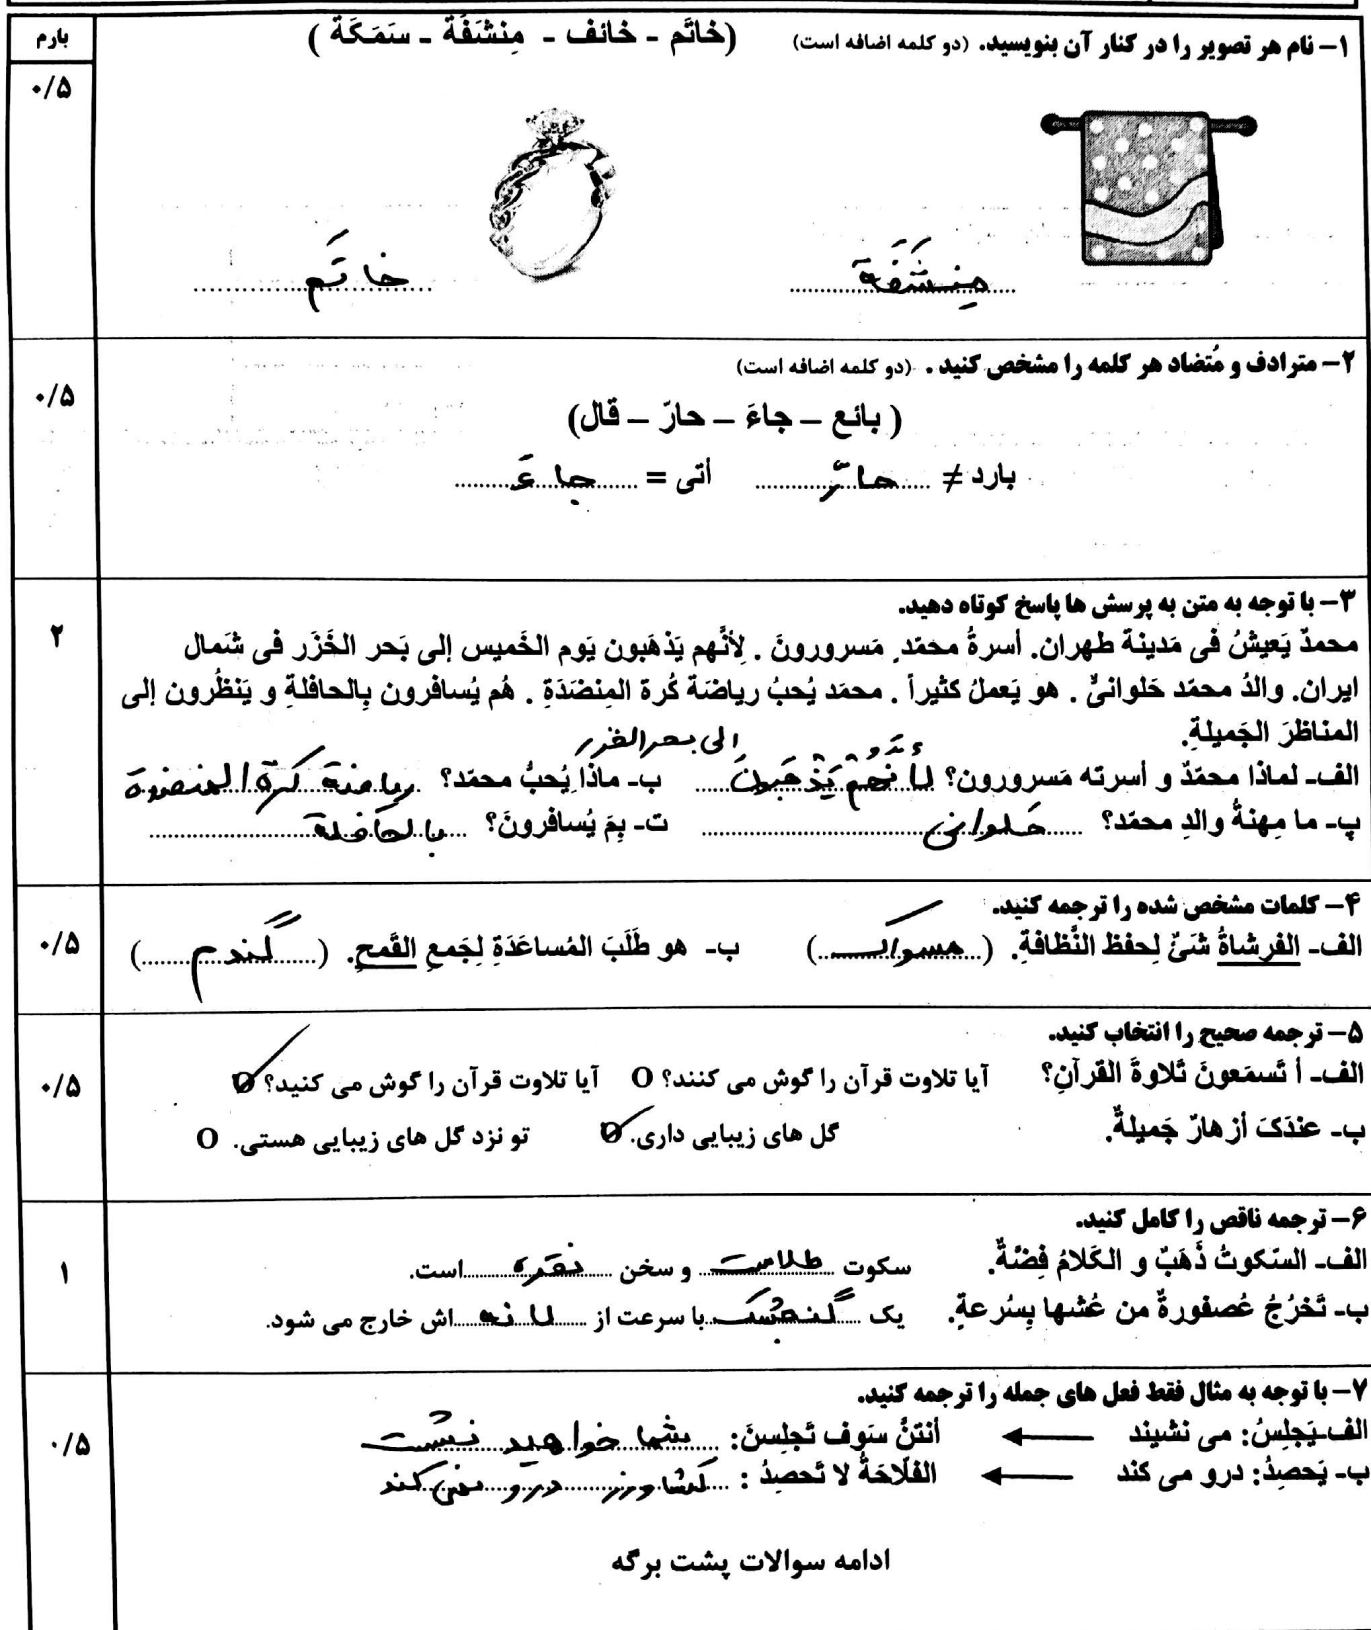 بارم
۱– نام هر تصویر را در کنار آن بنویسید. (دو کلمه اضافه است) (خاتَم - خائف - مِنشَفَة - سَمَكَة )
۰/۵
مِنشَفَة
خاتَم
۲– مترادف و مُتضاد هر کلمه را مشخص کنید . (دو کلمه اضافه است)
۰/۵
( بائع – جاءَ – حارّ – قال)
بارد ≠ حارّ أتی = جاءَ
۳– با توجه به متن به پرسش ها پاسخ کوتاه دهید.
۲
محمدٌ یَعیشُ فی مَدینة طهران. أسرةُ محمّد مَسرورونَ . لِأنَّهم یَذْهَبون یَوم الخَمیس إلی بَحر الخَزَر فی شَمال
ایران. والدُ محمّد حَلوانیٌّ . هو یَعملُ کثیراً . محمّد یُحبُ ریاضَة کُرة المِنضَدَةِ . هُم یُسافرون بِالحافلةِ و یَنظُرون إلی
المناظرَ الجَمیلةِ.
الی بحر الخزر
الف- لماذا محمّدٌ و أسرته مَسرورون؟ لِأنَّهُم یَذْهَبونَ ب- ماذا یُحبُّ محمّد؟ ریاضة کرة المنضدة
پ- ما مِهنةُ والدِ محمّد؟ حَلوانی ت- بِمَ یُسافرونَ؟ بالحافلة
۴– کلمات مشخص شده را ترجمه کنید.
۰/۵
الف- الفرشاةُ شَیٌ لِحفظ النَّظافةِ. (مسواک) ب- هو طَلَبَ المُساعَدَةِ لِجَمعِ القَمحِ. (گندم)
۵– ترجمه صحیح را انتخاب کنید.
۰/۵
الف- أ تَسمَعونَ تَلاوةَ القرآنِ؟ آیا تلاوت قرآن را گوش می کنند؟ O آیا تلاوت قرآن را گوش می کنید؟ O
ب- عندَکَ أزهارٌ جَمیلةٌ. گل های زیبایی داری. O تو نزد گل های زیبایی هستی. O
۶– ترجمه ناقص را کامل کنید.
۱
الف- السّکوتُ ذَهَبٌ و الکَلامُ فِضّةٌ. سکوت طلاست و سخن نقره است.
ب- تَخرُجُ عُصفورةٌ من عُشها بِسُرعةِ. یک گنجشک با سرعت از لانه اش خارج می شود.
۷– با توجه به مثال فقط فعل های جمله را ترجمه کنید.
۰/۵
الف- یَجلِسُ: می نشیند ← أنتنُّ سَوف تَجلِسنَ: شما خواهید نشست
ب- یَحصِدُ: درو می کند ← الفَلّاحَةُ لا تَحصِدُ : کشاورز درو نمی کند
ادامه سوالات پشت برگه